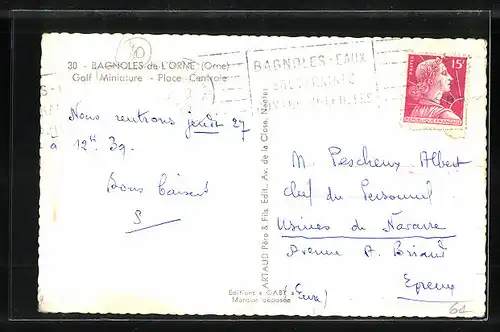 30 - BAGNOLES de L'ORNE (Orne)
Golf Miniature - Place Centrale
30
BAGNOLES-EAUX
15F
Nous rentrons jeudi 27
à 12h 39.
Bons baisers
M Pescheux Albert
Chef du Personnel
Usines de Navarre
Avenue A. Briand
Evreux
(Eure)
ARTAUD Père & Fils Edit., Av. de la Close, Nantes
Editions « GABY »
Marque déposée
61